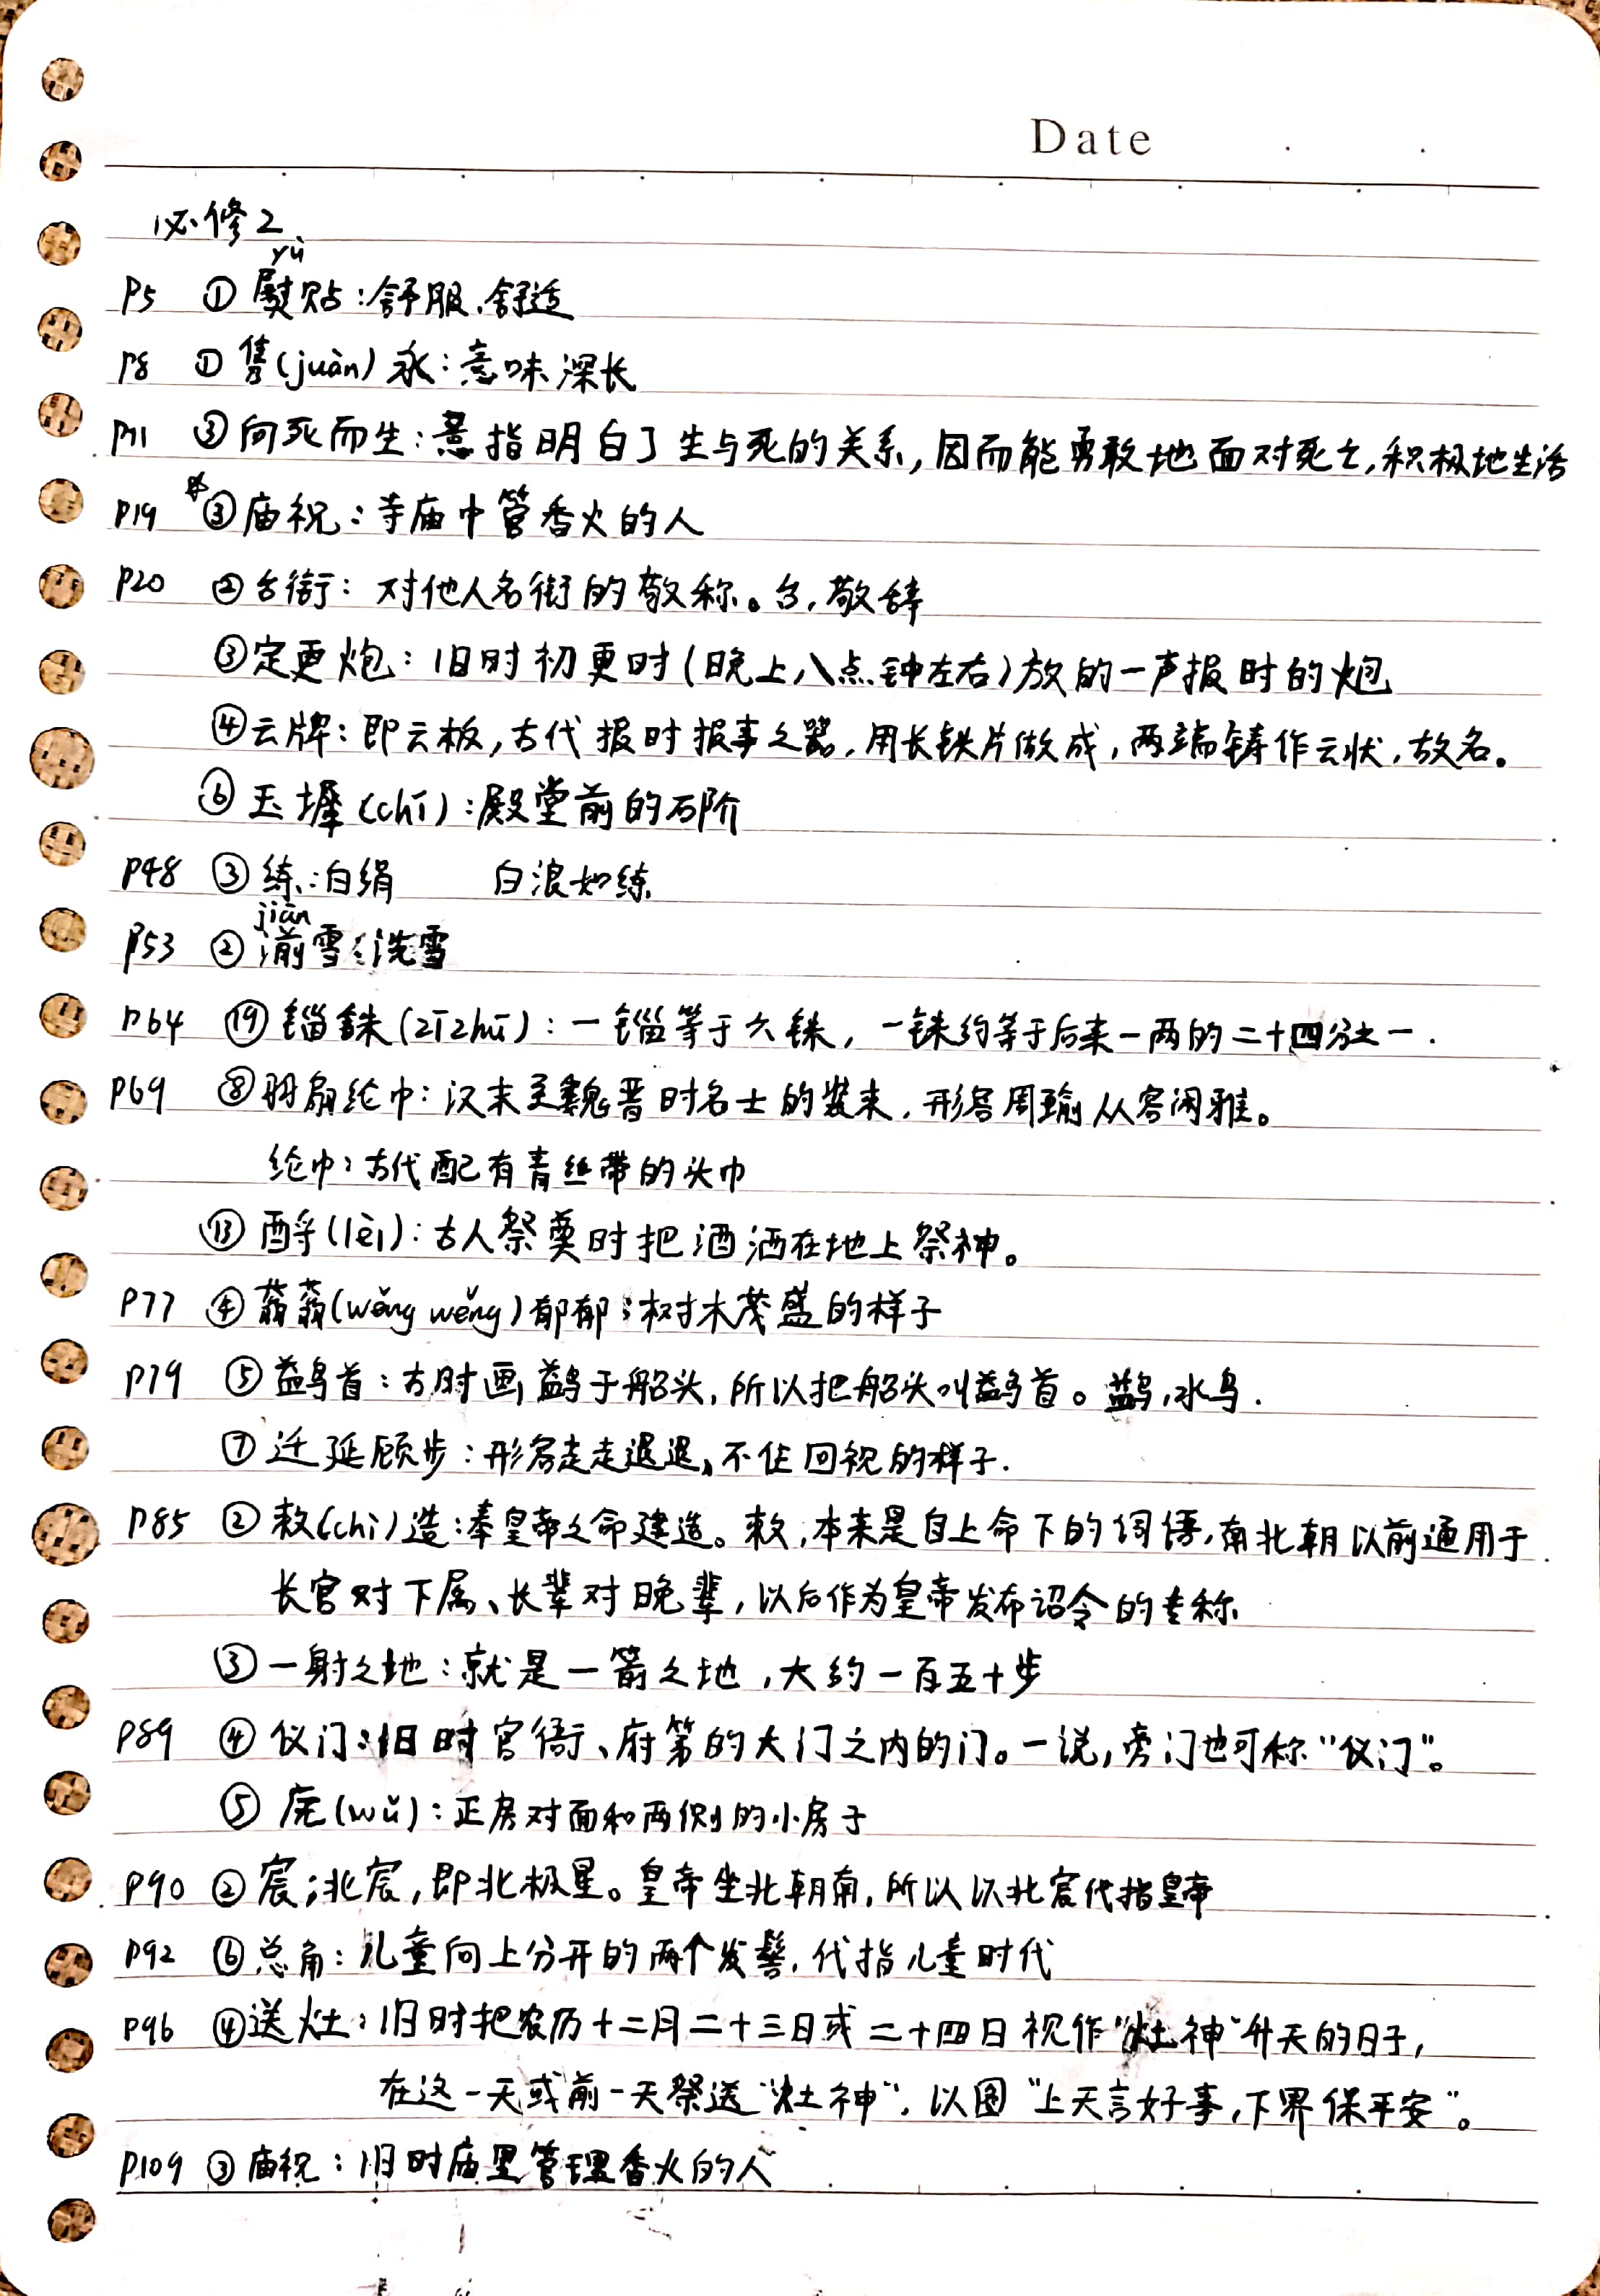 Date
必修2
yù
P5 ① 熨贴:舒服、舒适
P8 ① 隽(juàn)永:意味深长
P11 ③ 向死而生:意指明白了生与死的关系,因而能勇敢地面对死亡,积极地生活
P19 ③ 庙祝:寺庙中管香火的人
P20 ② 台衔:对他人名衔的敬称。台,敬辞
③ 定更炮:旧时初更时(晚上八点钟左右)放的一声报时的炮
④ 云牌:即云板,古代报时报事之器,用长铁片做成,两端铸作云状,故名。
⑥ 玉墀(chí):殿堂前的石阶
P48 ③ 练:白绢 白浪如练
jiān
P53 ② 湔雪:洗雪
P64 ⑲ 锱铢(zīzhū):一锱等于六铢,一铢约等于后来一两的二十四分之一.
P69 ⑧ 羽扇纶巾:汉末至魏晋时名士的装束,形容周瑜从容闲雅。
纶巾:古代配有青丝带的头巾
⑬ 酹(lèi):古人祭奠时把酒洒在地上祭神。
P77 ④ 蓊蓊(wěng wěng)郁郁:树木茂盛的样子
P79 ⑤ 鹢首:古时画鹢于船头,所以把船头叫鹢首。鹢,水鸟.
⑦ 迁延顾步:形容走走退退、不住回视的样子.
P85 ② 敕(chì)造:奉皇帝之命建造。敕,本来是自上命下的词语,南北朝以前通用于
长官对下属、长辈对晚辈,以后作为皇帝发布诏令的专称
③ 一射之地:就是一箭之地,大约一百五十步
P89 ④ 仪门:旧时官衙、府第的大门之内的门。一说,旁门也可称“仪门”。
⑤ 庑(wǔ):正房对面和两侧的小房子
P90 ② 宸:北宸,即北极星。皇帝坐北朝南,所以以北宸代指皇帝
P92 ⑥ 总角:儿童向上分开的两个发髻,代指儿童时代
P96 ④ 送灶:旧时把农历十二月二十三日或二十四日视作“灶神”升天的日子,
在这一天或前一天祭送“灶神”,以图“上天言好事,下界保平安”。
P109 ③ 庙祝:旧时庙里管理香火的人